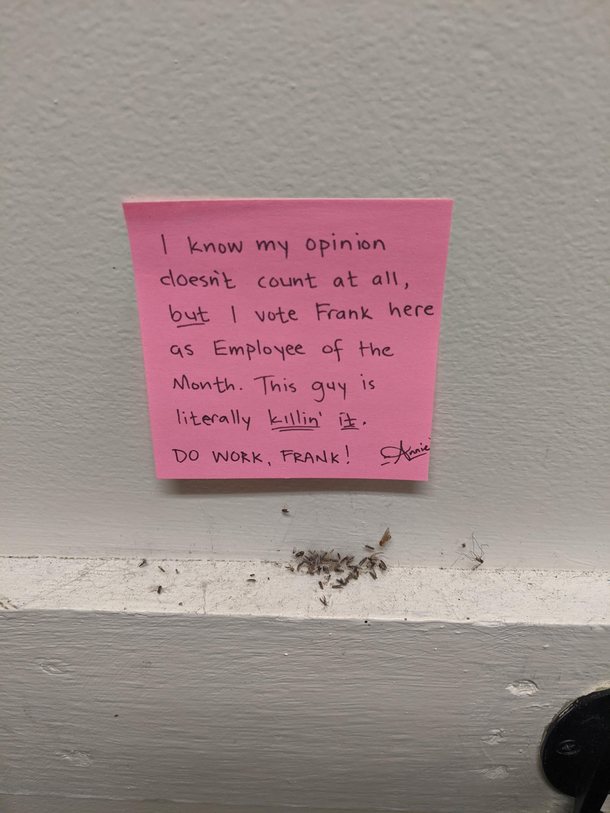 I know my opinion
doesn't count at all,
but I vote Frank here
as Employee of the
Month. This guy is
literally killin' it.
DO WORK, FRANK! Annie